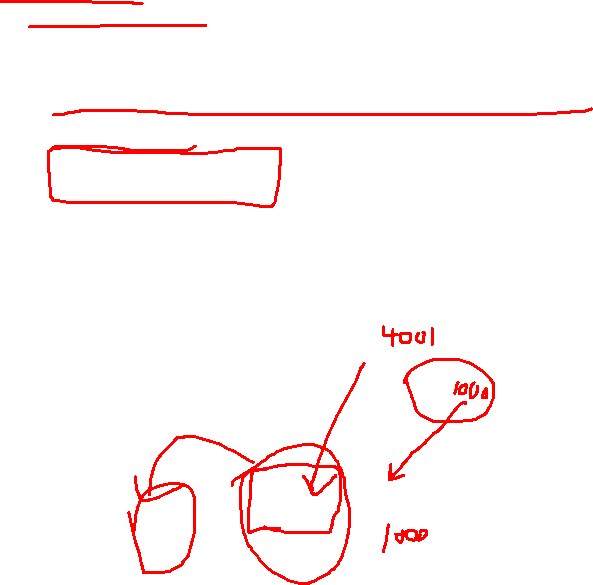 4001
1000
1000